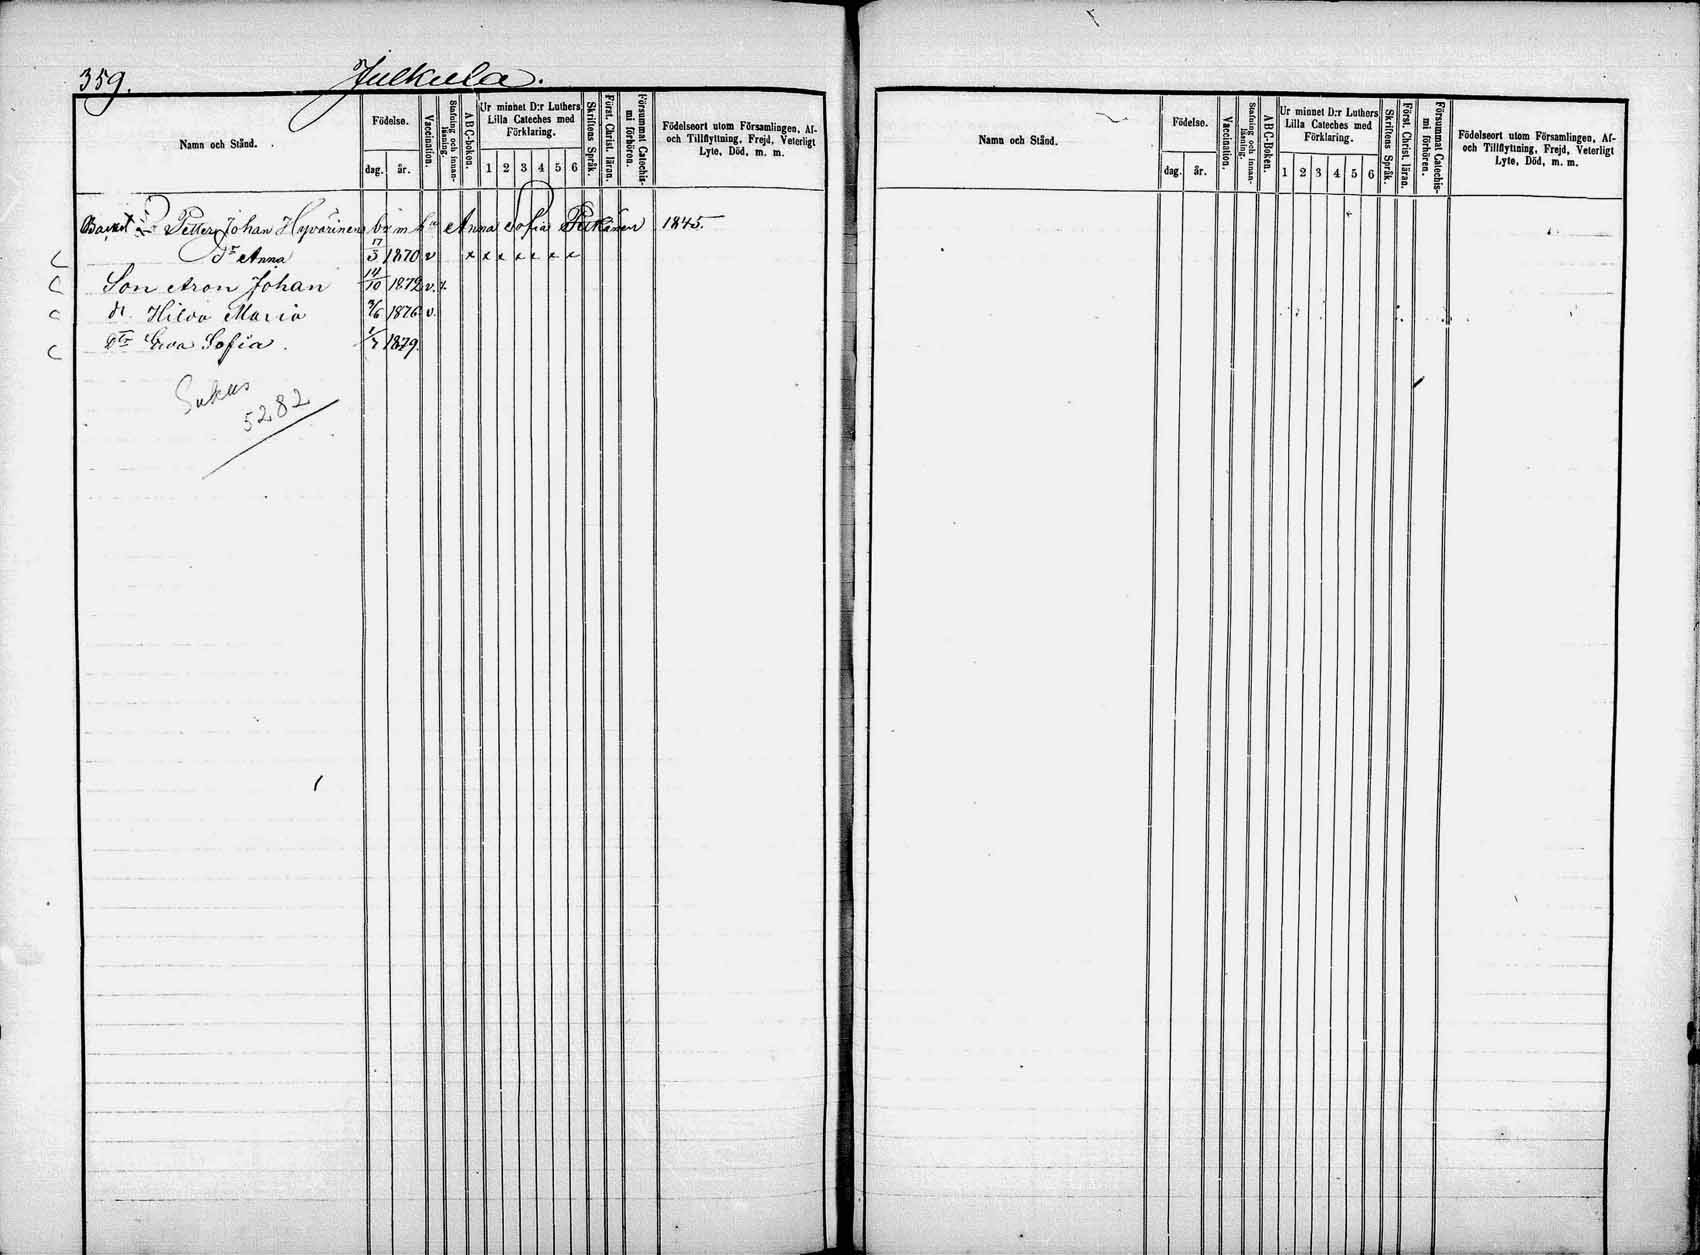 359. Julkula.
Namn och Stånd.
Födelse.
dag. år.
Vaccination.
Stafning och innan-läsning.
ABC-boken.
Ur minnet D:r Luthers Lilla Cateches med Förklaring.
1 2 3 4 5 6
Skriftens Språk.
Först. Christ. läran.
Försummat Catechis-mi förhören.
Födelseort utom Församlingen, Af-
och Tillflyttning, Frejd, Veterligt
Lyte, Död, m. m.
Petter Johan Hyvärinen m Anna Sofia 1845.
Dr Anna 17/3 1870 v x x x x x x x
Son Aron Johan 14/10 1872 v. x.
dr. Hilda Maria 2/6 1876 v.
Dtr Eeva Sofia. 1/7 1879.
Sukus
5282
Namn och Stånd.
Födelse.
dag. år.
Vaccination.
Stafning och innan-läsning.
ABC-Boken.
Ur minnet D:r Luthers Lilla Cateches med Förklaring.
1 2 3 4 5 6
Skriftens Språk.
Först. Christ. läran.
Försummat Catechis-mi förhören.
Födelseort utom Församlingen, Af-
och Tillflyttning, Frejd, Veterligt
Lyte, Död, m. m.